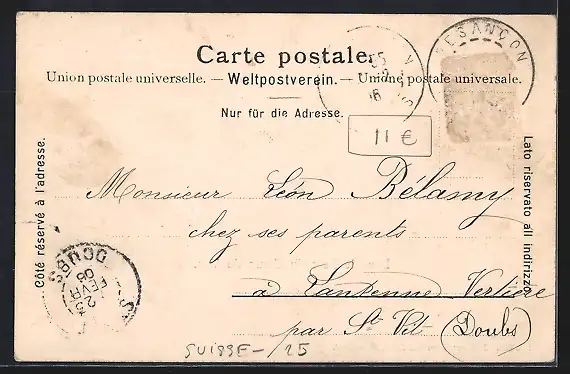 Carte postale.
Union postale universelle. — Weltpostverein. — Unione postale universale.
Nur für die Adresse.
BESANÇON
11 €
Côté réservé à l'adresse.
Lato riservato all indirizzo
Monsieur Léon Bélamy
chez ses parents
à Lantenne Vertière
par St Vit (Doubs)
DOUBS
25
FEVR
08
SUISSE - 25